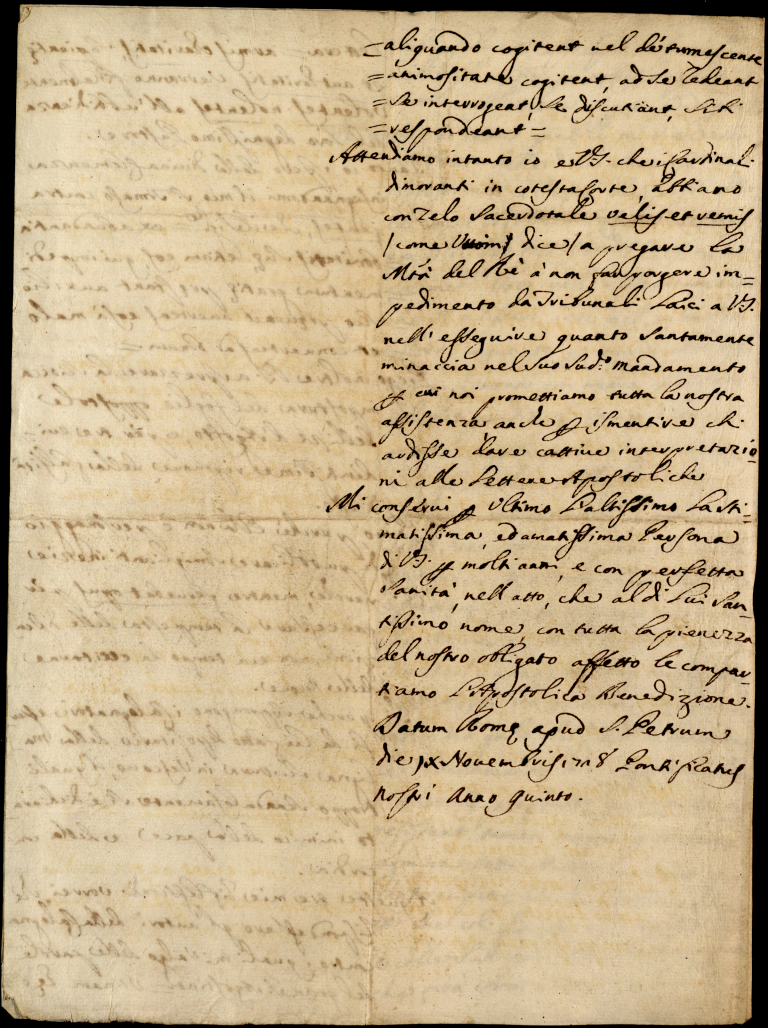 =aliquando cogitent vel detumescente
=animositate cogitent, ad se redeant
=se interrogent, se discutiant, sibi
=respondeant=
Attendiamo intanto io e V.S. che i Cardinali
dimoranti in cotesta Corte, abbiano
con Zelo Sacerdotale velis et remis
/come dice/ a pregare la
Mtà del Rè à non far porgere im=
pedimento da Tribunali Laici a V.S.
nell'esseguire quanto santamente
minaccia nel suo sud.o mandamento
p cui noi promettiamo tutta la nostra
assistenza anche p ismentire chi
ardisse dare cattive interpretazio=
ni alle Lettere Apostoliche
Mi conservi p ultimo l'altissimo la sti=
matissima, ed amatissima Persona
di V.S. p molti anni, e con perfetta
Sanità, nell'atto, che al di Lui San=
tissimo nome, con tutta la pienezza
del nostro obligato affetto le compar=
tiamo l'Apostolica Benedizione.
Datum Romę apud S. Petrum
die ix Novembris 1718 Pontificatus
nostri Anno quinto.